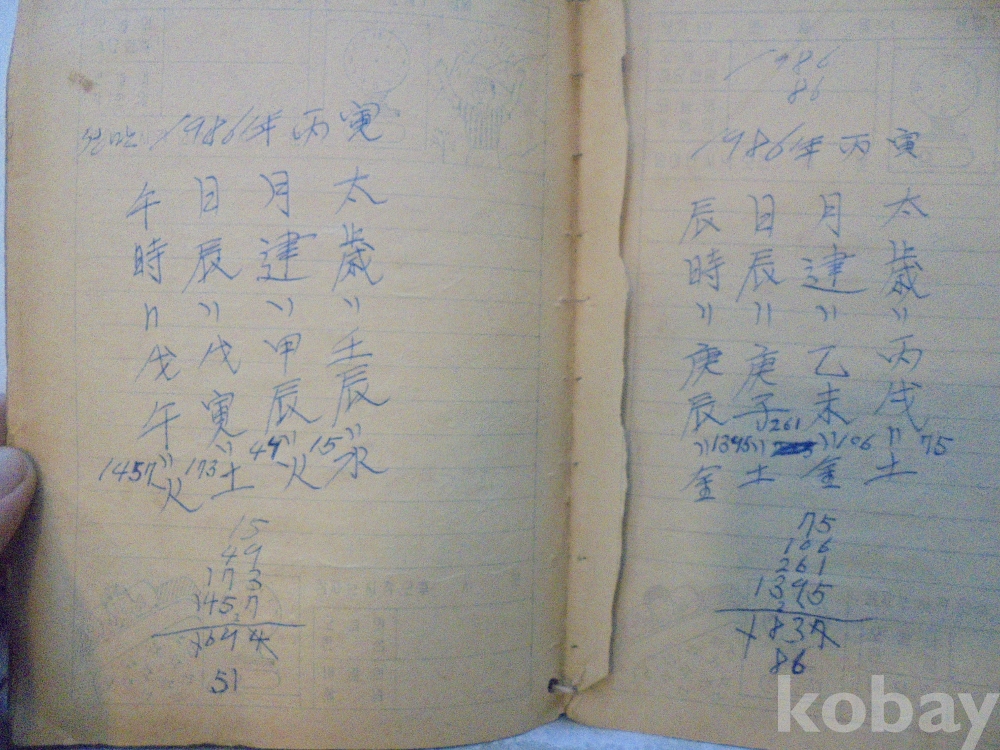 1986年 丙寅
太歲〃壬辰〃水
15
月建〃甲辰〃火
49
日辰〃戊寅〃土
173
午時〃戊午〃火
1457
15
49
173
1457
1694
51
1986
86
1986年 丙寅
太歲〃丙戌〃土
75
月建〃乙未〃金
106
日辰〃庚子〃土
261
辰時〃庚辰〃金
1395
75
106
261
1395
1837
86
kobay